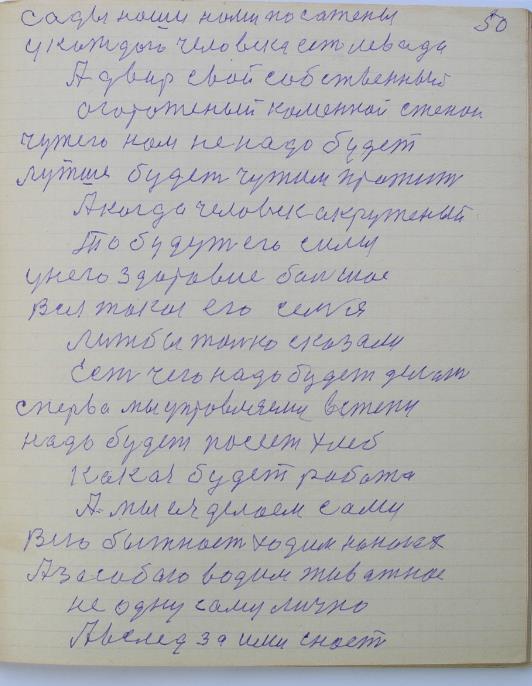 50
сады наши нами посажены
у каждого человека ест левада
А двар свой собственный
огороженый каменной стеной
чужего нам не надо будет
лутше будет чужим прожит
А когда человек акруженый
То будут его силы
у него здоровие балшое
Вся такая его семя
лиж бы толко сказали
Ест чего надо будет делат
сперва мы управляемы в степи
надо будет посеет хлеб
Какая будет работа
А мы ея делаем сами
В его бытност ходим на ногах
А за сабаю водим живатное
не одну саму лично
А вслед за ими сноет